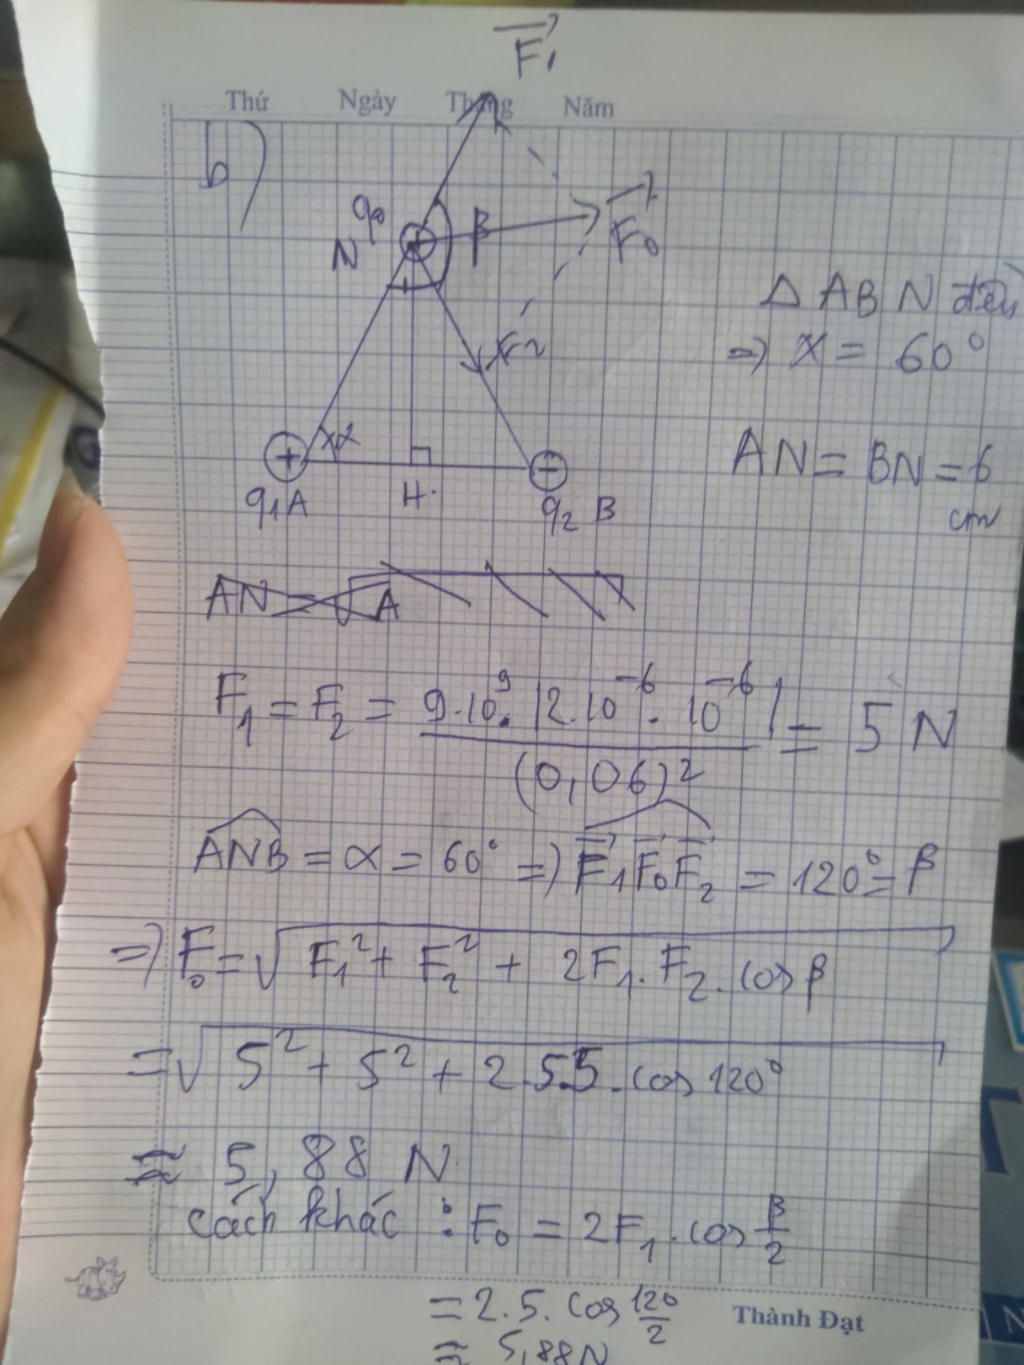 F₁
Thứ Ngày Tháng Năm
b)
q₀
N
β
F₀
Δ ABN đều
=> α = 60°
F₂
α
AN = BN = 6
cm
+
-
q₁ A
H
q₂ B
AN = √A
F₁ = F₂ = 9.10⁹.|2.10⁻⁶.10⁻⁶| / (0,06)² = 5 N
ANB = α = 60° => F₁F₀F₂ = 120° = β
=> F₀ = √F₁² + F₂² + 2F₁.F₂.cos β
= √5² + 5² + 2.5.5.cos 120°
≈ 5,88 N
cách khác : F₀ = 2F₁.cos β/2
= 2.5.cos 120/2
Thành Đạt
≈ 5,88N